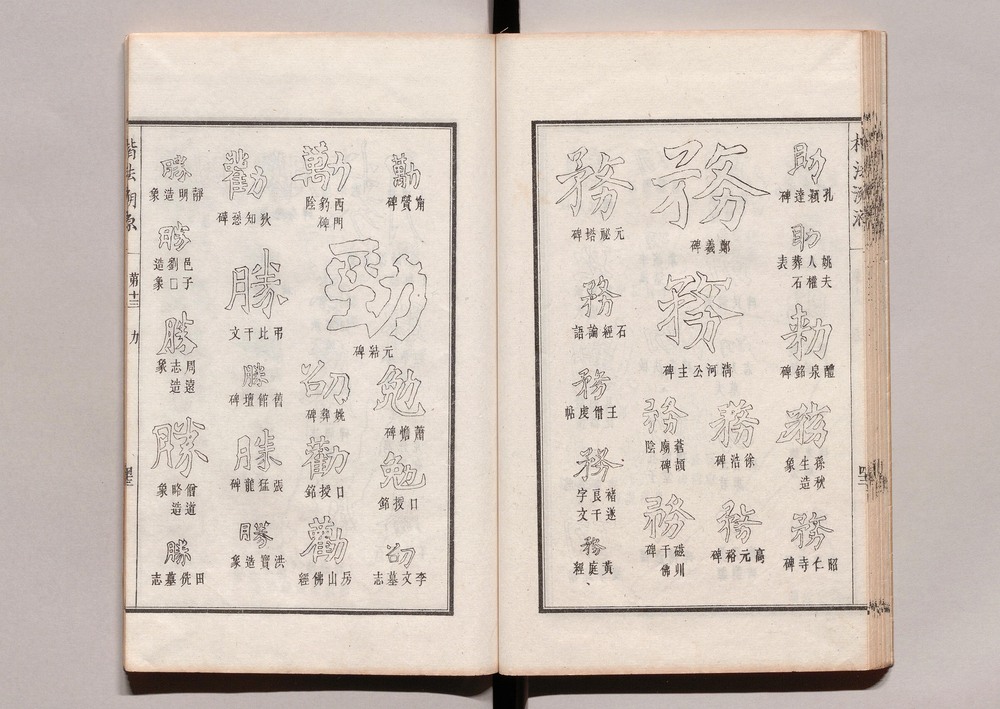 楷法溯源
助
孔穎達碑
助
姚夫人權葬石表
勑
醴泉銘碑
務
孫秋生造象
務
昭仁寺碑
務
鄭羲碑
務
清河公主碑
務
徐浩碑
務
高元裕碑
務
蒼頡廟碑陰
務
磁州千佛碑
務
元祕塔碑
務
石經論語
務
王僧虔帖
務
褚遂良千字文
務
黃庭經
勱
甯贙碑
勱
西門豹碑陰
勁
元結碑
勉
蕭憺碑
勉
口授銘
劭
李文墓志
劭
姚彝碑
勸
口授銘
勸
房山佛經
勸
狄知愻碑
勝
弔比干文
勝
舊館壇碑
勝
張猛龍碑
勝
洪寶造象
勝
靜明造象
勝
邑子劉口造象
勝
周遠志造象
勝
僧道略造象
勝
田侁墓志
楷法溯源 第十三 力